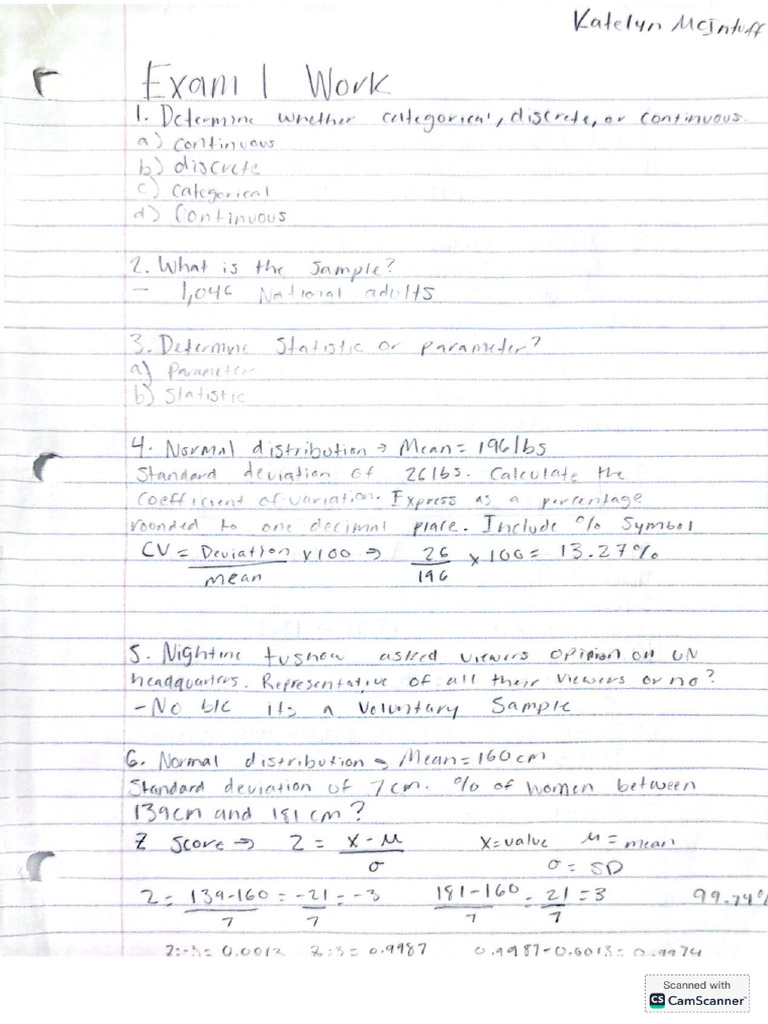 Katelyn McIntuff
Exam 1 Work
1. Determine whether categorical, discrete, or continuous.
a) continuous
b) discrete
c) categorical
d) Continuous
2. What is the sample?
- 1,046 National adults
3. Determine Statistic or parameter?
a) Parameter
b) Statistic
4. Normal distribution → Mean = 196 lbs
Standard deviation of 26 lbs. Calculate the
coefficient of variation. Express as a percentage
rounded to one decimal place. Include % Symbol
CV = Deviation/mean x 100 → 26/196 x 100 = 13.27%
5. Nightime tvshow asked viewers opinion on UN
headquarters. Representative of all their viewers or no?
- No b/c its a Voluntary Sample
6. Normal distribution → Mean = 160 cm
Standard deviation of 7 cm. % of women between
139 cm and 181 cm?
Z Score → Z = x - μ/σ x = value μ = mean
σ = SD
Z = 139-160/7 = -21/7 = -3 181-160/7 = 21/7 = 3 99.74%
Z: -3 = 0.0013 Z: 3 = 0.9987 0.9987-0.0013 = 0.9974
Scanned with
CS CamScanner